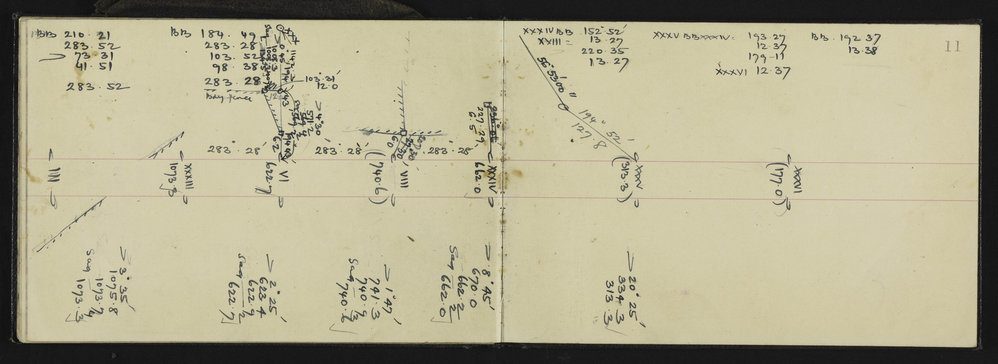 BB 210. 21
283. 52
> 73. 31
41. 51
283. 52
BB 184. 49
283. 28
103. 52
98. 38
283. 28
Bay fence
103. 31'
12.0
283. 28'
283. 28'
283. 28'
III
XXXIII
1073.3
VI
622.7
VIII
(740.6)
XXXIV
662.0
> 3° 35'
1075.8
1073.7
Sag .4
1073.3
> 2° 25'
623.4
622.9
Sag .2
622.7
> 1° 47'
741.3
740.9
Sag .3
740.6
> 8° 45'
670.0
662.2
Sag .2
662.0
XXXIV BB 152. 52'
XXIII = 13. 27
220. 35
13. 27
XXXV BB XXXIV. 193. 27
12. 37
179. 11
XXXVI 12. 37
BB. 192 37
13. 38
11
194° 52'
127.8
XXXV
(313.3)
XXXVI
(177.0)
> 20° 25'
334.3
313.3